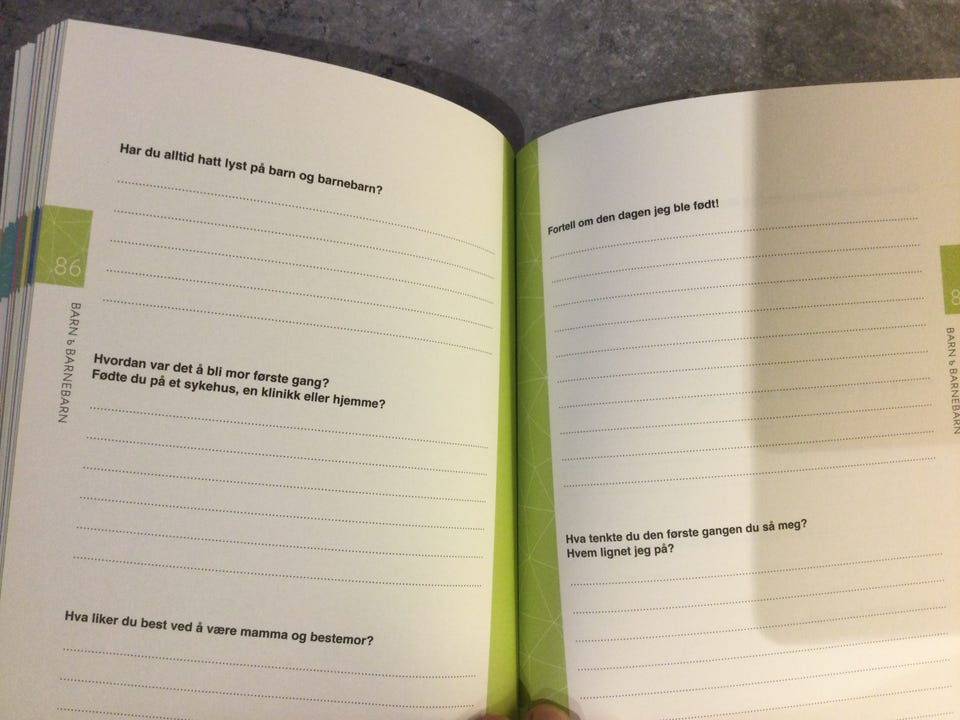 Har du alltid hatt lyst på barn og barnebarn?
86
BARN & BARNEBARN
Hvordan var det å bli mor første gang?
Fødte du på et sykehus, en klinikk eller hjemme?
Hva liker du best ved å være mamma og bestemor?
Fortell om den dagen jeg ble født!
8
BARN & BARNEBARN
Hva tenkte du den første gangen du så meg?
Hvem lignet jeg på?